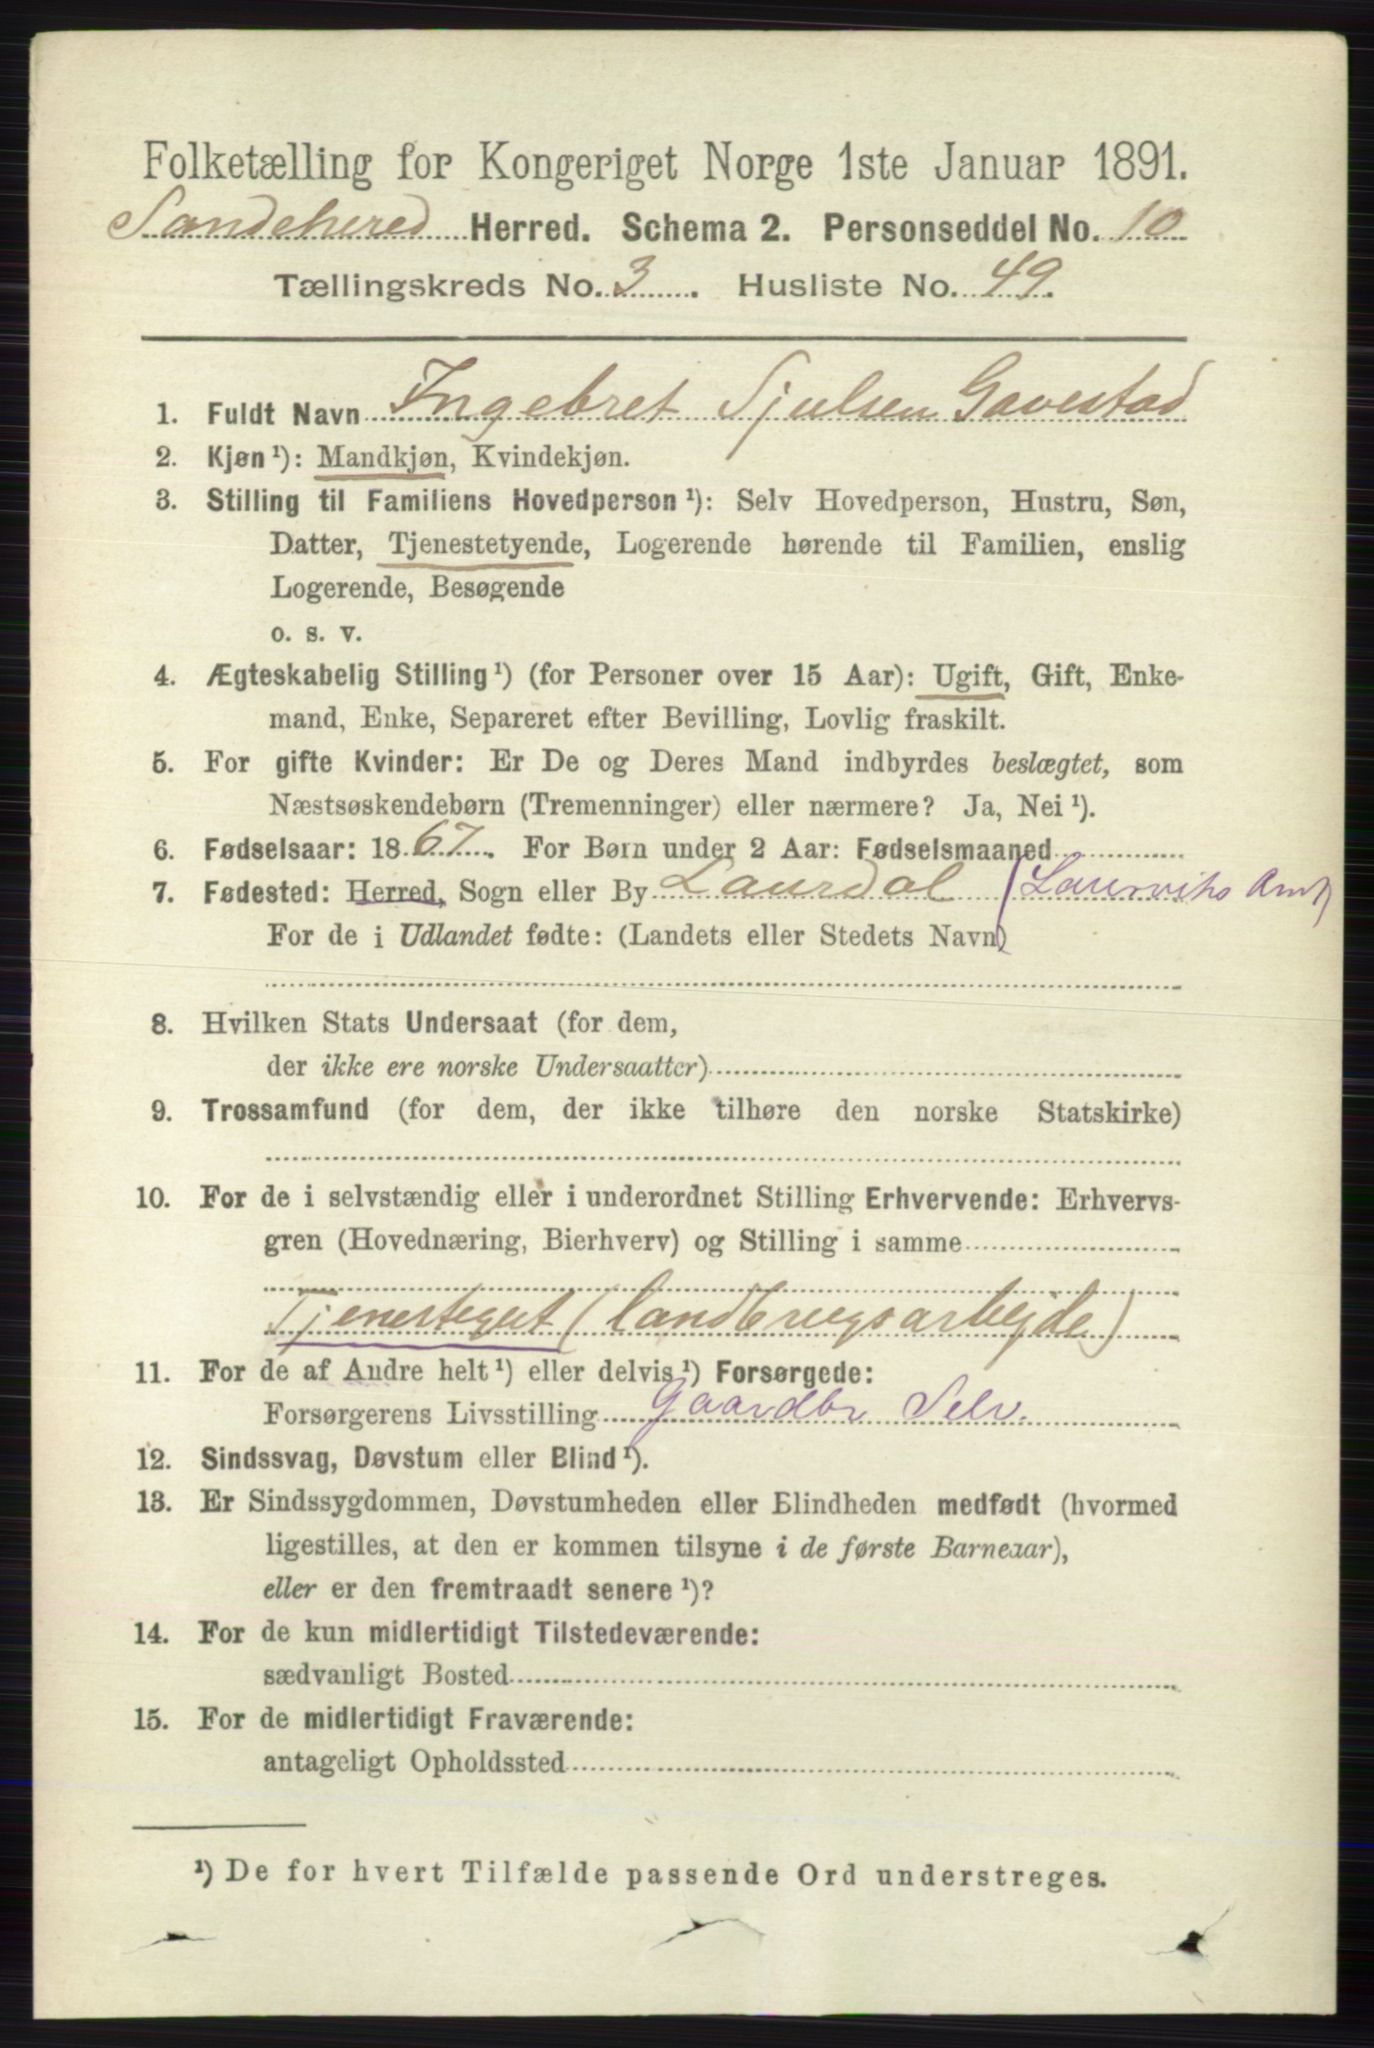 Folketælling for Kongeriget Norge 1ste Januar 1891.
Sandehered Herred. Schema 2. Personseddel No. 10
Tællingskreds No. 3. Husliste No. 49.
1. Fuldt Navn Ingebret Sjulsen Gavestad
2. Kjøn ¹): Mandkjøn, Kvindekjøn.
3. Stilling til Familiens Hovedperson ¹): Selv Hovedperson, Hustru, Søn,
Datter, Tjenestetyende, Logerende hørende til Familien, enslig
Logerende, Besøgende
o. s. v.
4. Ægteskabelig Stilling ¹) (for Personer over 15 Aar): Ugift, Gift, Enke-
mand, Enke, Separeret efter Bevilling, Lovlig fraskilt.
5. For gifte Kvinder: Er De og Deres Mand indbyrdes beslægtet, som
Næstsøskendebørn (Tremenninger) eller nærmere? Ja, Nei ¹).
6. Fødselsaar: 1867. For Børn under 2 Aar: Fødselsmaaned
7. Fødested: Herred, Sogn eller By Laurdal (Laurviks Amt)
For de i Udlandet fødte: (Landets eller Stedets Navn)
8. Hvilken Stats Undersaat (for dem,
der ikke ere norske Undersaatter)
9. Trossamfund (for dem, der ikke tilhøre den norske Statskirke)
10. For de i selvstændig eller i underordnet Stilling Erhvervende: Erhvervs-
gren (Hovednæring, Bierhverv) og Stilling i samme
Tjenestegut (landbrugsarbejde)
11. For de af Andre helt ¹) eller delvis ¹) Forsørgede:
Forsørgerens Livsstilling Gaardbr Selv.
12. Sindssvag, Døvstum eller Blind ¹).
13. Er Sindssygdommen, Døvstumheden eller Blindheden medfødt (hvormed
ligestilles, at den er kommen tilsyne i de første Barneaar),
eller er den fremtraadt senere ¹)?
14. For de kun midlertidigt Tilstedeværende:
sædvanligt Bosted
15. For de midlertidigt Fraværende:
antageligt Opholdssted
¹) De for hvert Tilfælde passende Ord understreges.